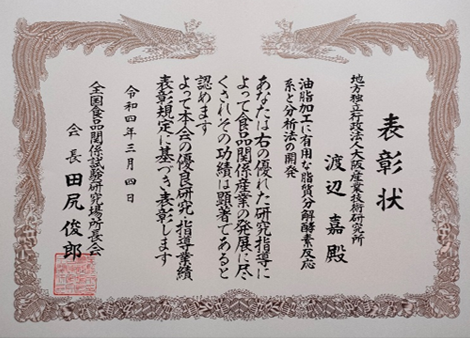 表彰状
地方独立行政法人大阪産業技術研究所
渡辺 嘉 殿
油脂加工に有用な脂質分解酵素反応
系と分析法の開発
あなたは右の優れた研究指導に
よって食品関係産業の発展に尽
くされその功績は顕著であると
認めます
よって本会の優良研究・指導業績
表彰規定に基づき表彰します
令和四年三月四日
全国食品関係試験研究場所長会
会長 田尻 俊郎